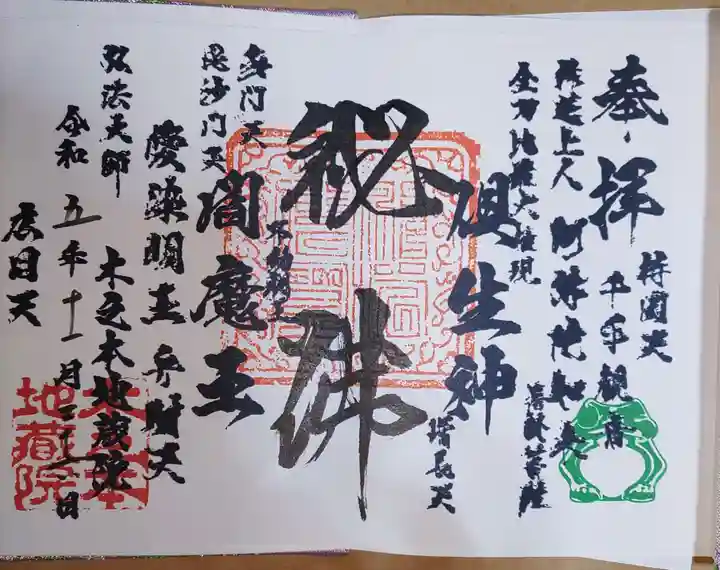 奉拝
持国天
千手観音
阿弥陀如来
善上人
金刀比羅大権現
増長天
倶生神
秘佛
不動明王
閻魔王
多聞天
毘沙門天
愛染明王
弁財天
弘法大師
木之本地蔵院
令和五年十一月二十二日
広目天
木之本
地蔵院